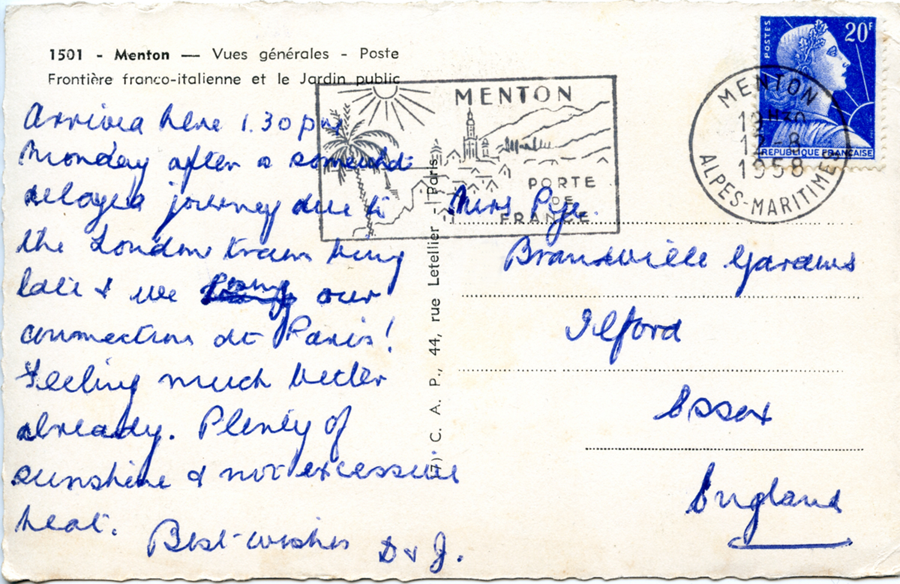 1501 - Menton — Vues générales - Poste
Frontière franco-italienne et le Jardin public
Arrived here 1.30 pm
Monday after a somewhat
delayed journey due to
the London train being
late & we our
connection at Paris!
Feeling much better
already. Plenty of
sunshine & not excessive
heat.
Best-wishes D & J.
C. A. P., 44, rue Letellier - Paris
MENTON
PORTE
DE
FRANCE
MENTON
12H30
12-8
1958
ALPES-MARITIMES
POSTES
20F
REPUBLIQUE FRANÇAISE
Mrs Pye.
Gardens
Ilford
Essex
England